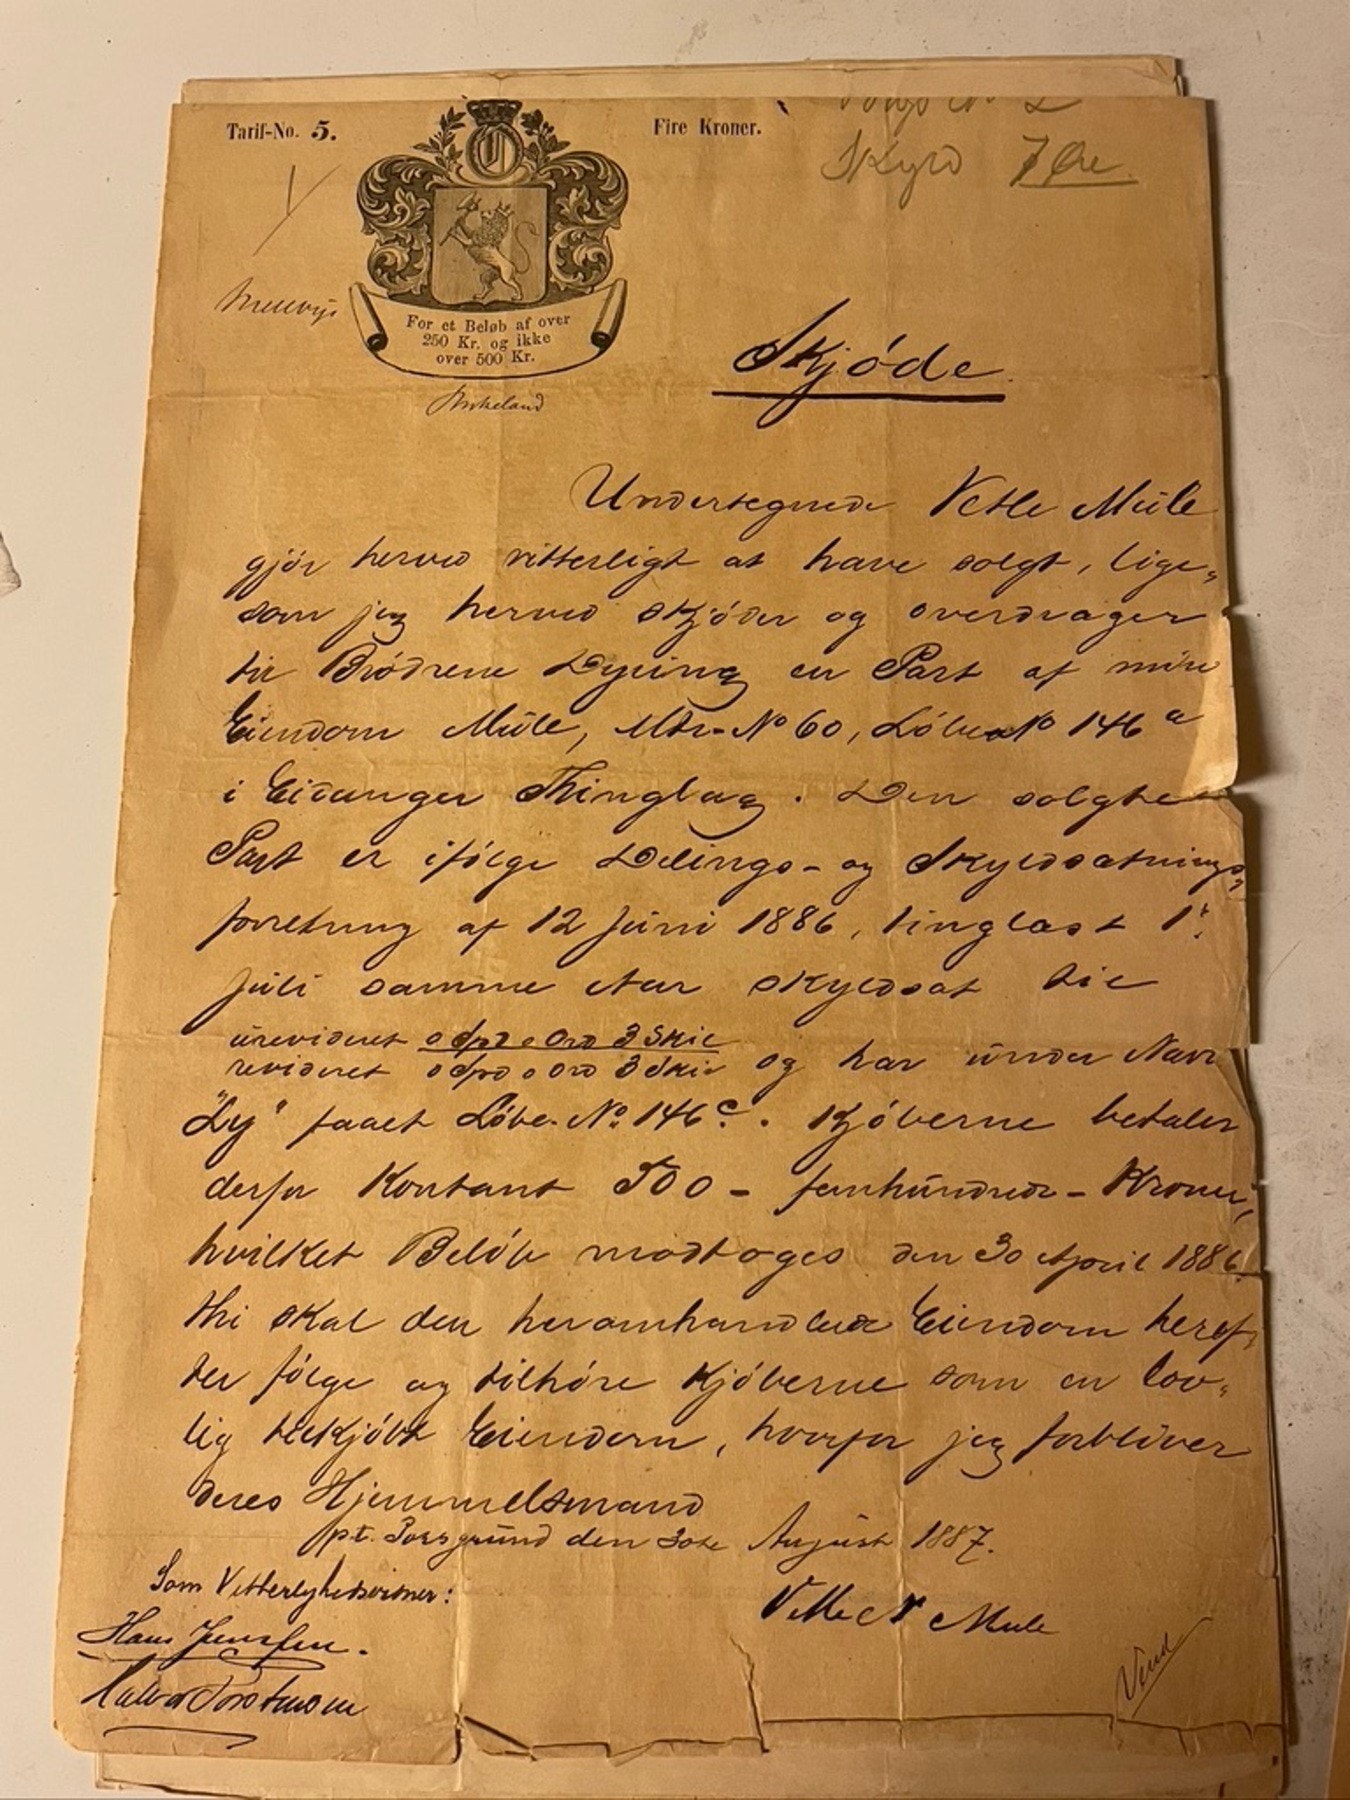 Tarif-No. 5.
Fire Kroner.
Skyld 7 Øre
O
For et Beløb af over
250 Kr. og ikke
over 500 Kr.
Skjøde
Undertegnede Vetle Mule
gjør herved vitterligt at have solgt, lige-
som jeg herved skjøder og overdrager
til Brødrene Dyring en Part af min
Eiendom Mule, Mtr-No 60, Løbe No 146 a
i Eidanger Thinglag. Den solgte
Part er ifølge Delings- og Skyldsætnings-
forretning af 12 Juni 1886, tinglæst 1.
Juli samme Aar skyldsat til
urevideret o dpd o Ord 3 Skil
revideret o dpd o Ord 3 Skil og har under Navn
"Ly" faaet Løbe-No. 146 c. Kjøberne betaler
derfor Kontant 500 - femhundrede - Kroner,
hvilket Beløb modtoges den 30 April 1886
thi skal den heromhandlede Eiendom heref-
ter følge og tilhøre Kjøberne som en lov-
lig tilkjøbt Eiendom, hvorfor jeg forbliver
deres Hjemmelsmand
p.t. Porsgrund den 30te August 1887.
Som Vitterlighedsvidner:
Vetle N Mule
Hans Jensen.
Halvor Torstensen
Vend